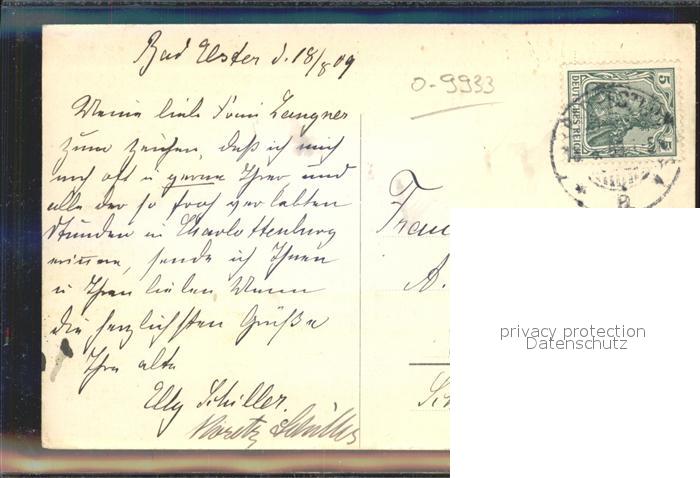 Bad Elster d. 18/8 09
0-9933
5
DEUTSCHES REICH
Meine liebe Frau Langner
zum Zeichen, daß ich mich
noch oft u gerne Ihrer und
alle der so froh verlebten
Stunden in Charlottenburg
erinnre, sende ich Ihnen
u Ihren lieben Mann
die herzlichsten Grüße
Ihre alte
Elly Schiller.
Moritz Schiller
Frau
A.
privacy protection
Datenschutz